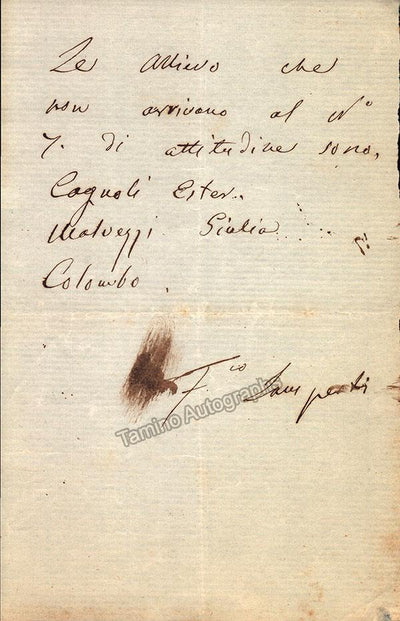 Le Allieve che
non arrivano al N.º
7. di attitudine sono,
Cagnoli Ester..
Malvezzi Giulia.....
Colombo.
F.co Lamperti
Tamino Autographs